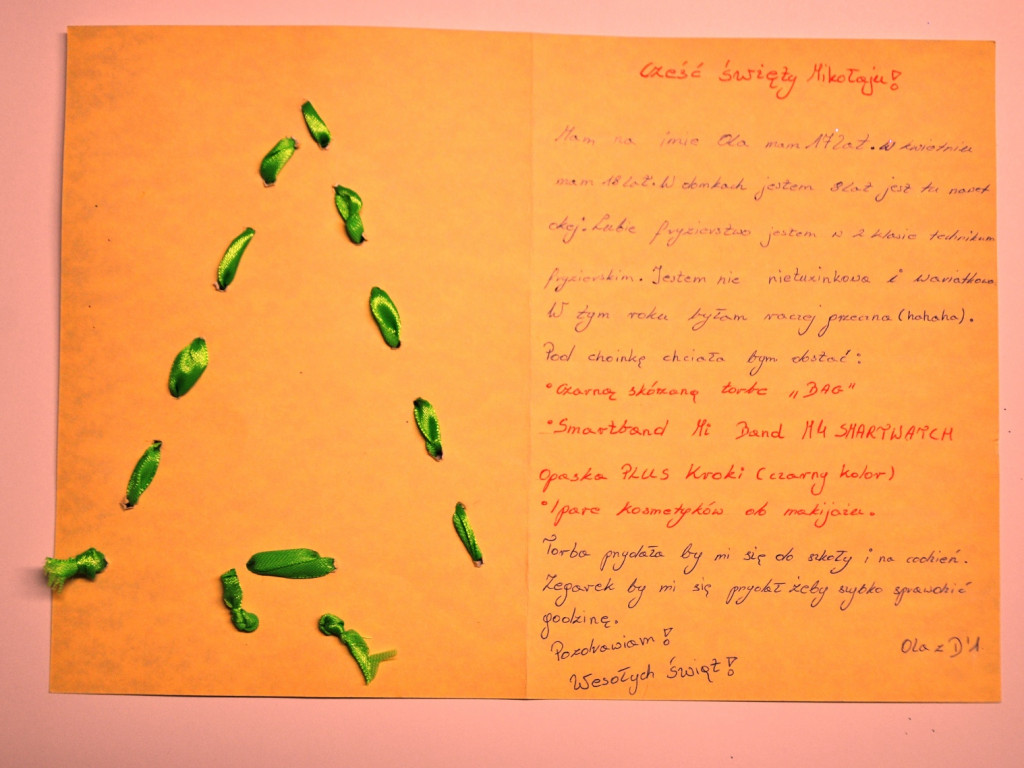 Cześć święty Mikołaju!
Mam na imie Ola mam 17 lat. W kwietniu
mam 18 lat. W domkach jestem 8 lat jest tu nawet
okej. Lubie fryzierstwo jestem w 2 klasie technikum
fryzierskim. Jestem nie nietuzinkowa i wariatkowa
W tym roku byłam raczej grzeczna (hahaha).
Pod choinkę chciała bym dostać:
• Czarną skórzaną torbe „BAG"
• Smartband Mi Band M4 SMARTWATCH
Opaska PLUS Kroki (czarny kolor)
• I pare kosmetyków do makijażu.
Torba przydała by mi się do szkoły i na codzień.
Zegarek by mi się przydał żeby szybko sprawdzić
godzinę.
Pozdrawiam!
Wesołych świąt!
Ola z D'1